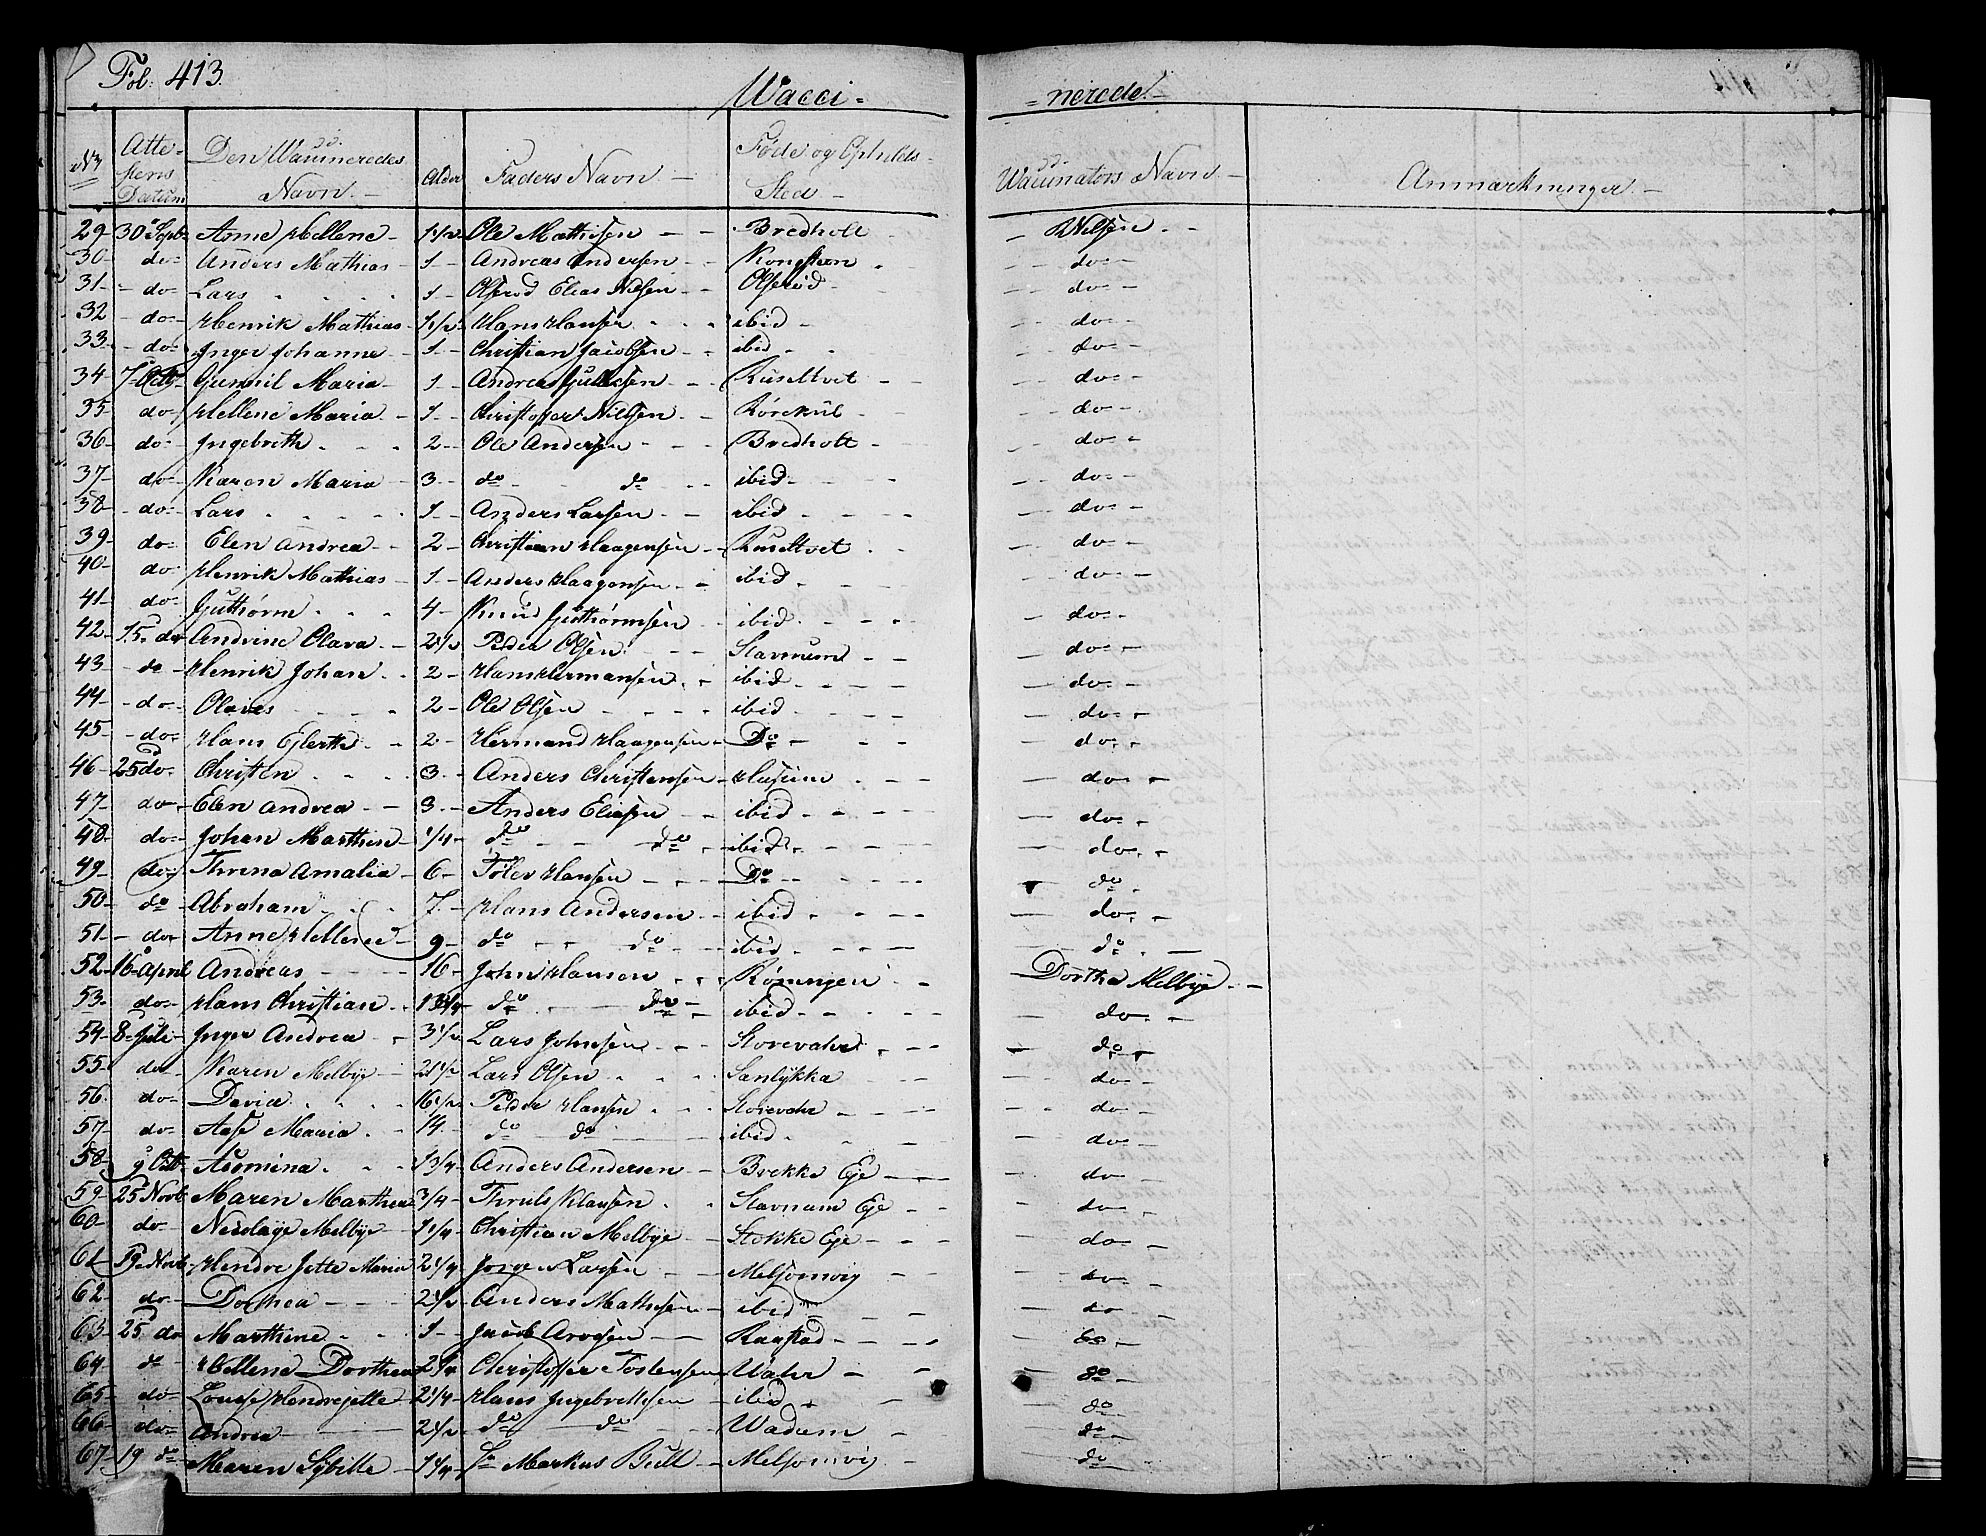 Fol: 413.
Wacci= =nerede.
No Attestens Datum Den Waccineredes Navn. Alder Faders Navn Føde og Opholds Sted Waccinators Navn. Anmærkninger.
29 30 Sept Anne Hellene 1 1/2 Ole Mathisen Bredholt Nilsen
30 do Anders Mathias 1 Andreas Andersen do
31 do Lars 1 Elias Nilsen Olsrød do
32 do Henrik Mathias 1 1/2 Hans Hansen ibid do
33 do Inger Johanne 1 Christian Jacobsen ibid do
34 7 Octb Gunnil Maria 1 Andreas Gulliksen do
35 do Hellene Maria 1 Christoffer Nilsen Rørekul do
36 do Ingebreth 2 Ole Andersen Bredholt do
37 do Karen Maria 3 do do ibid do
38 do Lars 1 Anders Larsen ibid do
39 do Elen Andrea 2 Christian Haagensen do
40 do Henrik Mathias 1 Anders Haagensen ibid do
41 do Gutthorm 4 Knud Gutthormsen ibid do
42 15 do Andrine Olava 2 1/2 Peder Olsen Stavnum do
43 do Henrik Johan 2 Hans Hermansen ibid do
44 do Olaves 2 Ole Olsen ibid do
45 do Hans Ejlerth 2 Hermand Haagensen Do do
46 25 do Christen 3 Anders Christensen Husum do
47 do Elen Andrea 3 Anders Eliasen ibid do
48 do Johan Marthin 1/4 do do ibid do
49 do Thrina Amalia 6 Tolev Hansen Do do
50 do Abraham 7 Hans Andersen ibid do
51 do Anne Hellene 9 do do ibid do
52 16 April Andreas 16 John Hansen Røningen Dorthe Melbye
53 do Hans Christian 13/4 do do ibid do
54 8 Juli Inger Andrea 3 1/2 Lars Johnsen Storevahr do
55 do Karen Melbye 2 1/2 Lars Olsen Sanlykka do
56 do David 16 1/2 Peder Hansen Storevahr do
57 do Aase Maria 14 do do ibid do
58 9 Octb Asomina 1 3/4 Anders Andersen Brekke Eje do
59 25 Novb Maren Marthea 3/4 Thruls Klausen Stavnum Eje do
60 do Nicolaÿe Melbye 1 1/4 Christian Melbye Stokke Eje do
61 19 Novb Hendre Jette Maria 2 1/4 Jørgen Larsen Melsomvig do
62 do Dorthea 2 1/2 Anders Mathisen ibid do
63 25 do Marthine 1 Jacob Arvesen Raastad do
64 do Hellene Dorthea 2 1/4 Christoffer Tostensen Wahr do
65 do Lovise Hendrejette 2 1/4 Hans Ingebrettsen ibid do
66 do Andrea 2 1/2 do do Wadum do
67 19 do Maren Sybille 1 1/4 Markus Bull Melsomvig do